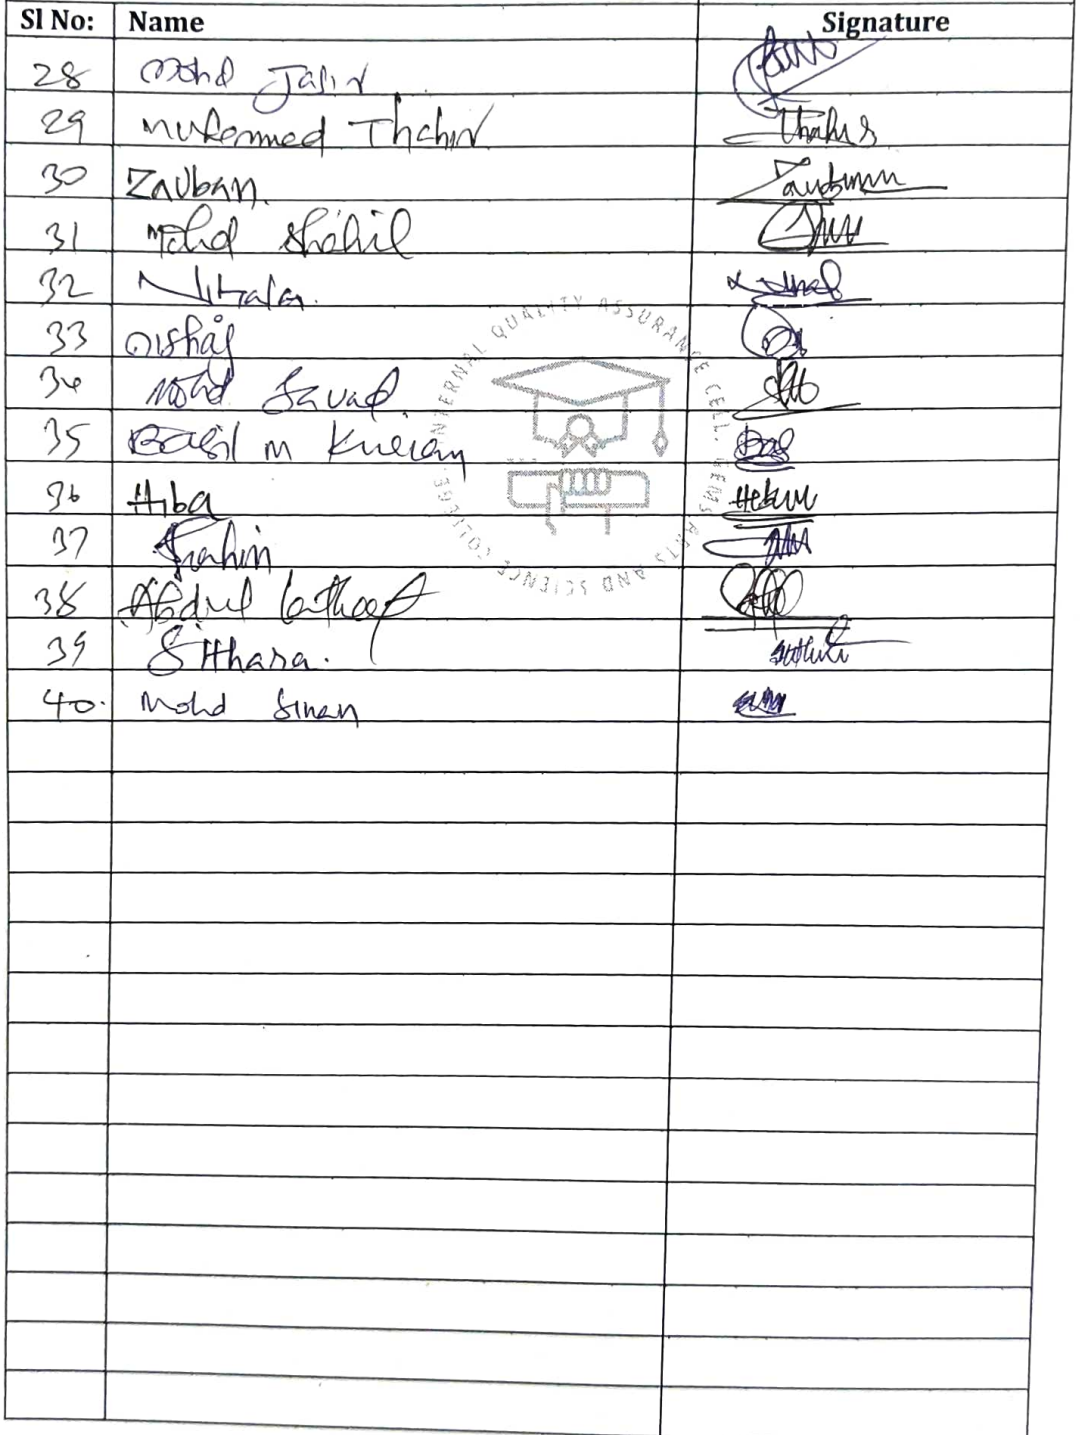 Sl No: Name Signature
28 Mohd Jasir
29 Muhammed Thahir Thahir
30 Zauban.
31 Mohd Shahil
32 Nihala.
33
34 Mohd Savad.
35 Basil M Kurian Bas
36 Hiba
37 Shahin
38 Abdul Latheef
39 Sithara.
40. Mohd Sinan
INTERNAL QUALITY ASSURANCE CELL. GEMS ARTS AND SCIENCE COLLEGE